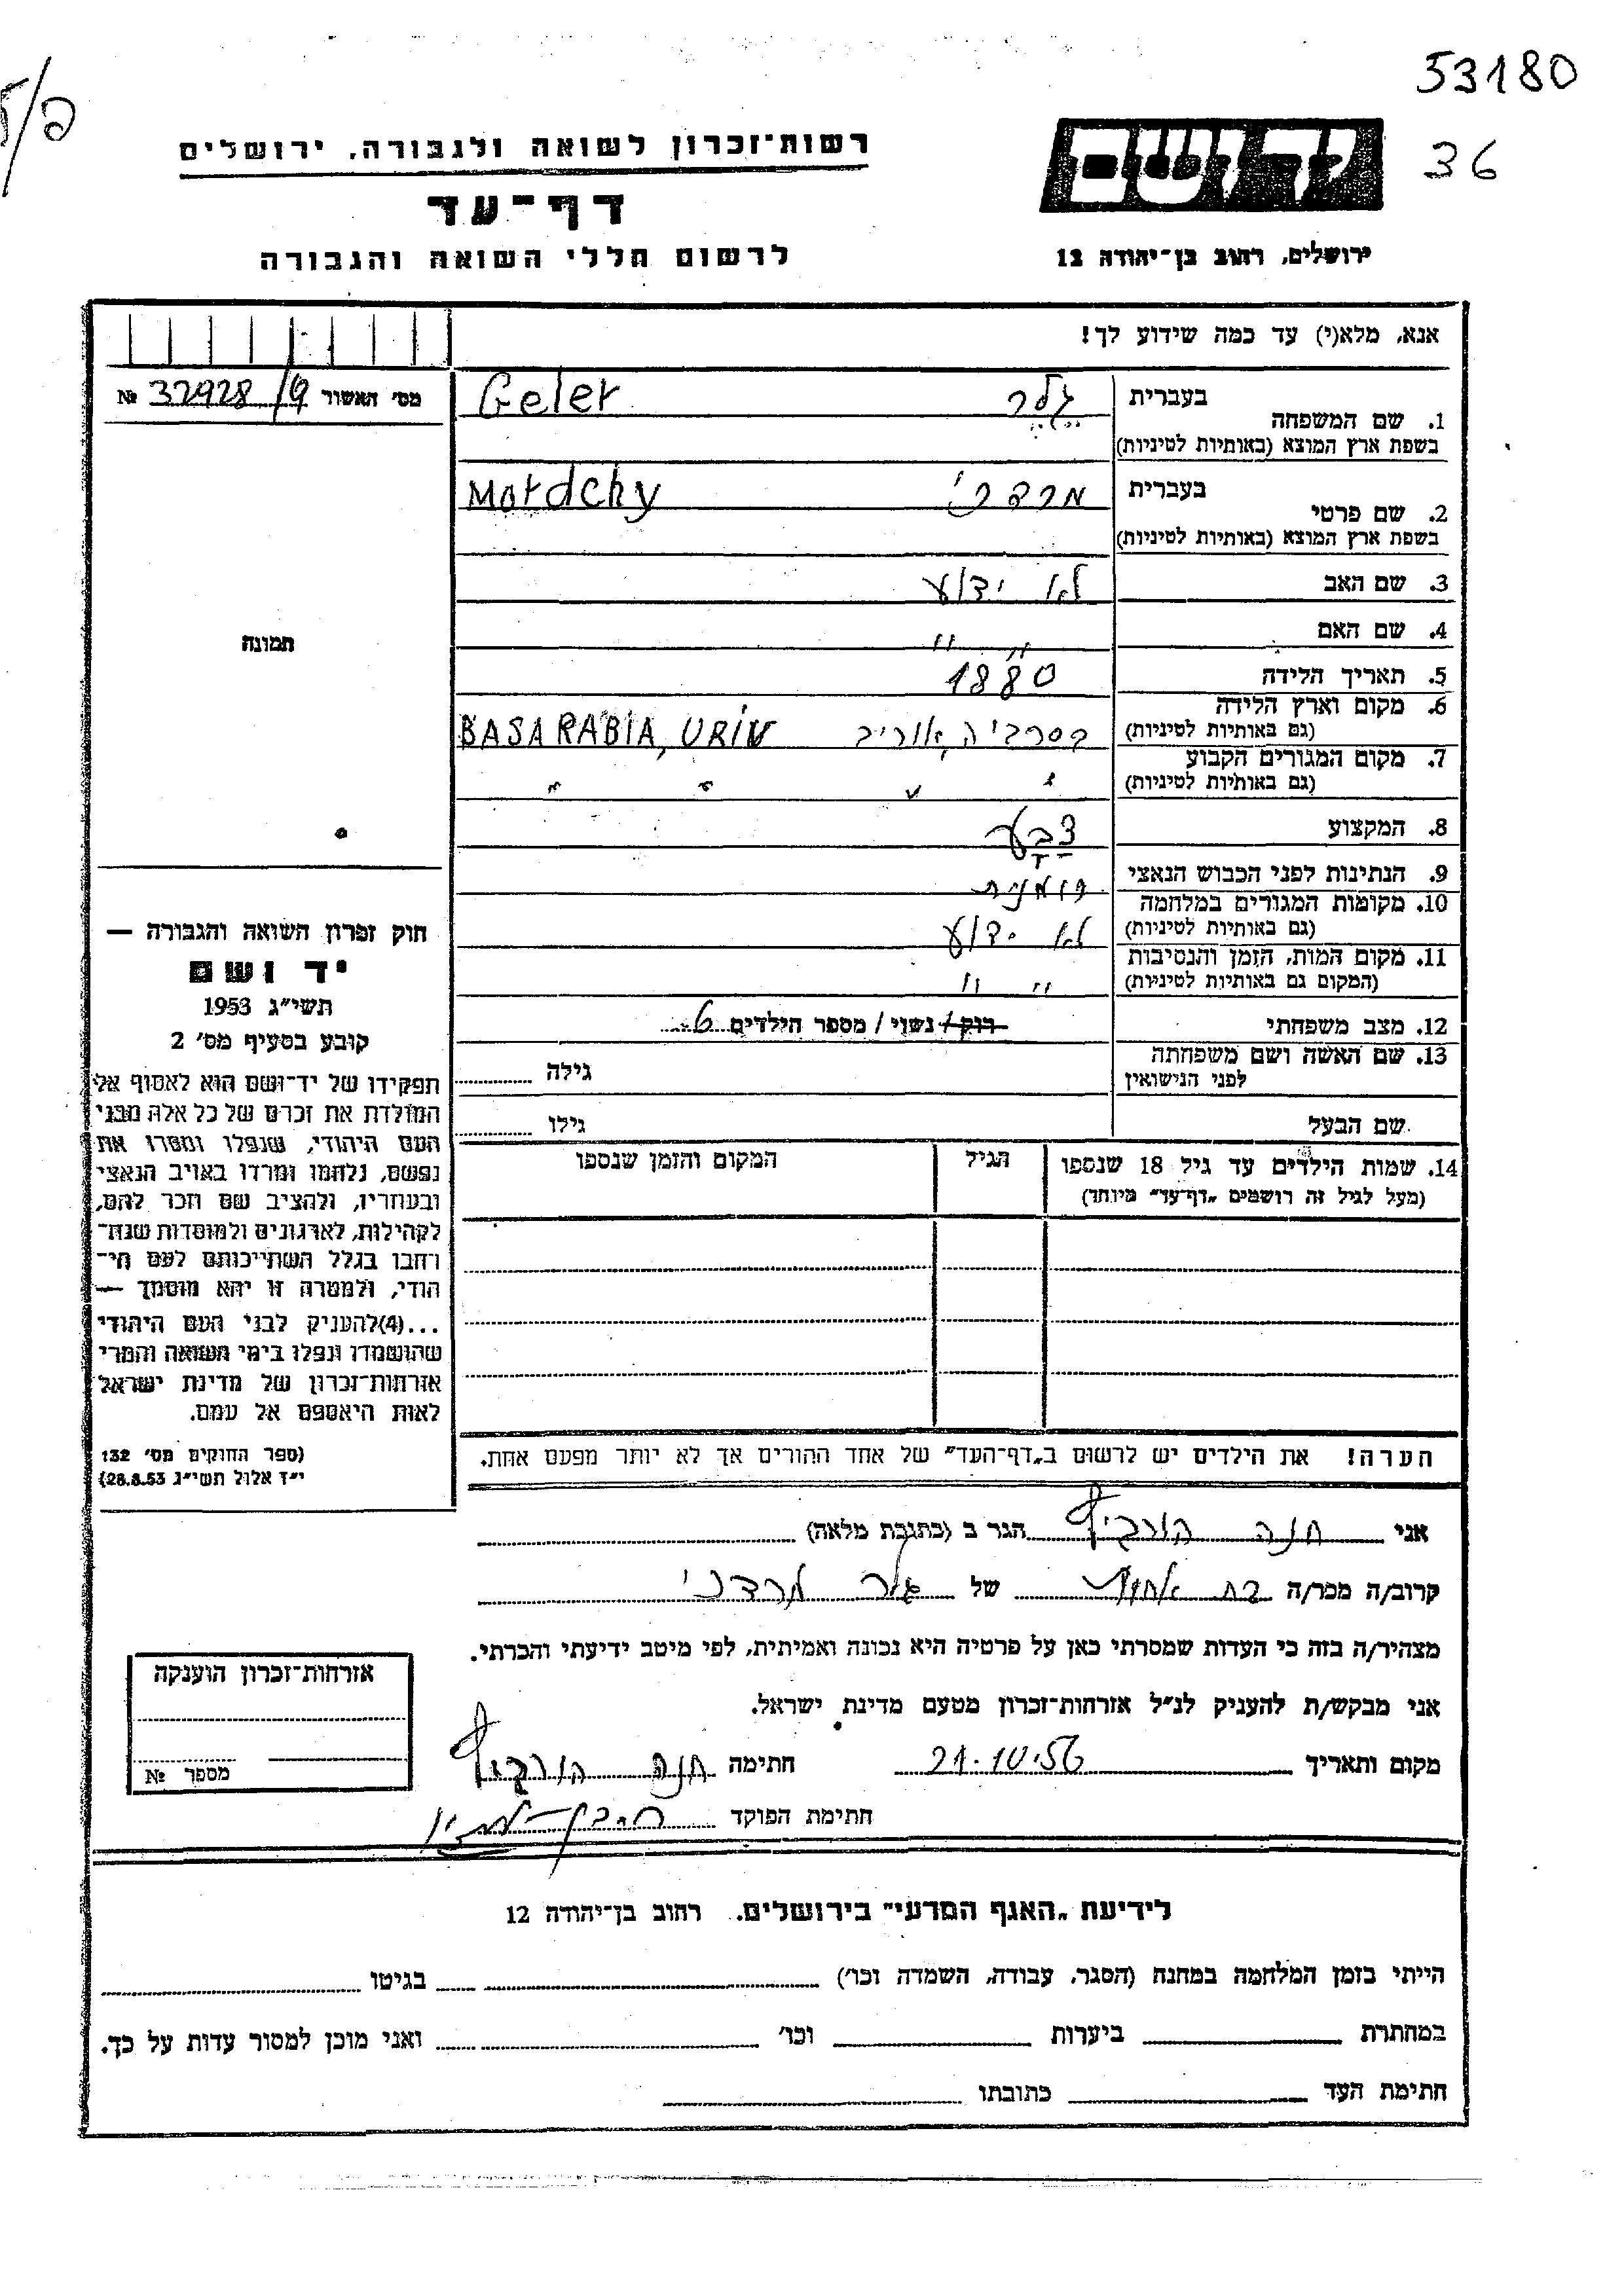 53180
36
פ/
יד ושם
ירושלים, רחוב בן־יהודה 12
רשות־זכרון לשואה ולגבורה, ירושלים
דף־עד
לרשום חללי השואה והגבורה
אנא, מלא(י) עד כמה שידוע לך!
מס׳ האשור 32928/9 №
1. שם המשפחה בעברית גלר Geler
בשפת ארץ המוצא (באותיות לטיניות)
2. שם פרטי בעברית מרדכי Mordchy
בשפת ארץ המוצא (באותיות לטיניות)
3. שם האב לא ידוע
4. שם האם " "
5. תאריך הלידה 1880
6. מקום וארץ הלידה בסרביה, אוריב BASARABIA, URIV
(גם באותיות לטיניות)
7. מקום המגורים הקבוע " " " "
(גם באותיות לטיניות)
8. המקצוע צבע
9. הנתינות לפני הכבוש הנאצי רומנית
10. מקומות המגורים במלחמה לא ידוע
(גם באותיות לטיניות)
11. מקום המות, הזמן והנסיבות " "
(המקום גם באותיות לטיניות)
12. מצב משפחתי רוק / נשוי / מספר הילדים 6
13. שם האשה ושם משפחתה גילה
לפני הנישואין
שם הבעל גילו
14. שמות הילדים עד גיל 18 שנספו הגיל המקום והזמן שנספו
(מעל לגיל זה רושמים „דף־עד” מיוחד)
הערה! את הילדים יש לרשום ב„דף־העד” של אחד ההורים אך לא יותר מפעם אחת.
תמונה
חוק זכרון השואה והגבורה —
יד ושם
תשי״ג 1953
קובע בסעיף מס׳ 2
תפקידו של יד־ושם הוא לאסוף אל
המולדת את זכרם של כל אלה מבני
העם היהודי, שנפלו ומסרו את
נפשם, נלחמו ומרדו באויב הנאצי
ובעוזריו, ולהציב שם וזכר להם,
לקהילות, לארגונים ולמוסדות שנח־
רבו בגלל השתייכותם לעם הי־
הודי, ולמטרה זו יהא מוסמך —
...(4)להעניק לבני העם היהודי
שהושמדו ונפלו בימי השואה והמרי
אזרחות־זכרון של מדינת ישראל
לאות היאספם אל עמם.
(ספר החוקים מס׳ 132
י״ז אלול תשי״ג 28.8.53)
אני חנה הורביץ הגר ב (כתובת מלאה)
קרוב/ה מכר/ה בת אחות של גלר מרדכי
מצהיר/ה בזה כי העדות שמסרתי כאן על פרטיה היא נכונה ואמיתית, לפי מיטב ידיעתי והכרתי.
אני מבקש/ת להעניק לנ״ל אזרחות־זכרון מטעם מדינת ישראל.
מקום ותאריך 21.10.56 חתימה חנה הורביץ
חתימת הפוקד
אזרחות־זכרון הוענקה
מספר №
לידיעת „האגף המדעי” בירושלים. רחוב בן־יהודה 12
הייתי בזמן המלחמה במחנה (הסגר, עבודה, השמדה וכו׳) בגיטו
במחתרת ביערות וכו׳ ואני מוכן למסור עדות על כך.
חתימת העד כתובתו